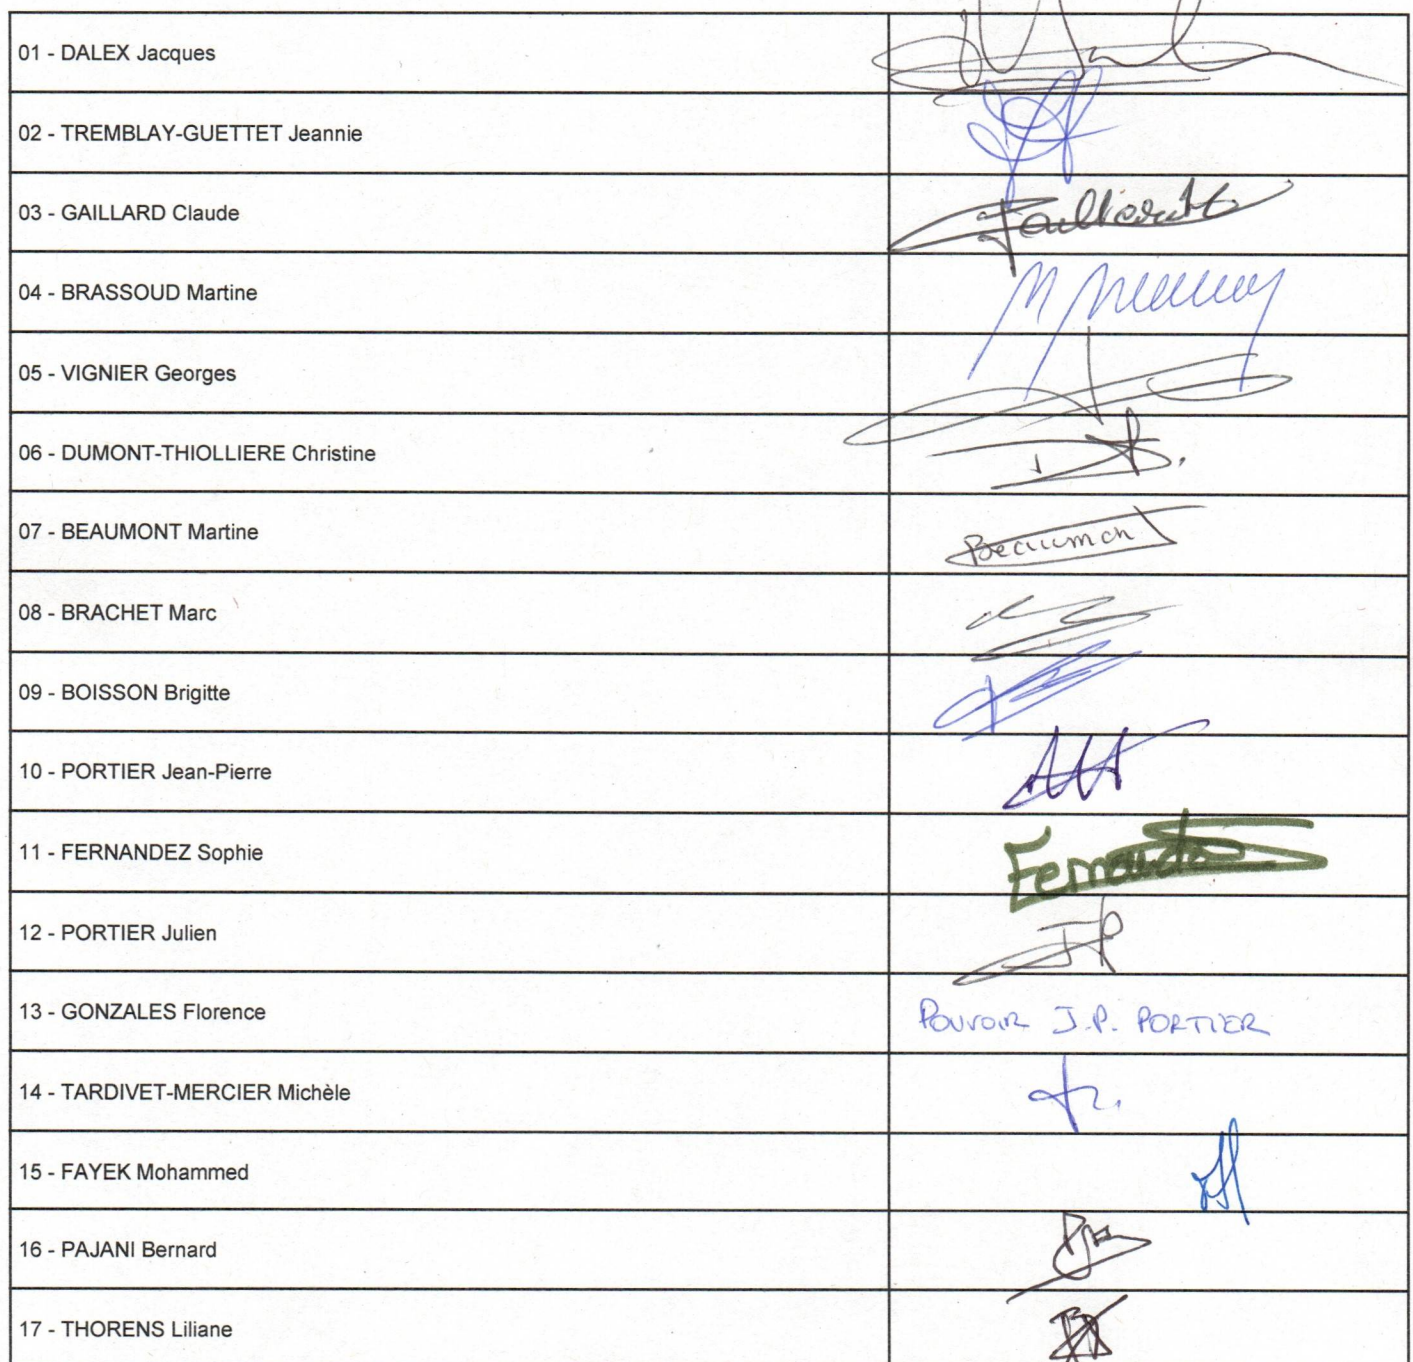 01 - DALEX Jacques
02 - TREMBLAY-GUETTET Jeannie
03 - GAILLARD Claude
04 - BRASSOUD Martine
05 - VIGNIER Georges
06 - DUMONT-THIOLLIERE Christine
07 - BEAUMONT Martine Beaumont
08 - BRACHET Marc
09 - BOISSON Brigitte
10 - PORTIER Jean-Pierre
11 - FERNANDEZ Sophie
12 - PORTIER Julien JP
13 - GONZALES Florence POUVOIR J.P. PORTIER
14 - TARDIVET-MERCIER Michèle
15 - FAYEK Mohammed
16 - PAJANI Bernard
17 - THORENS Liliane